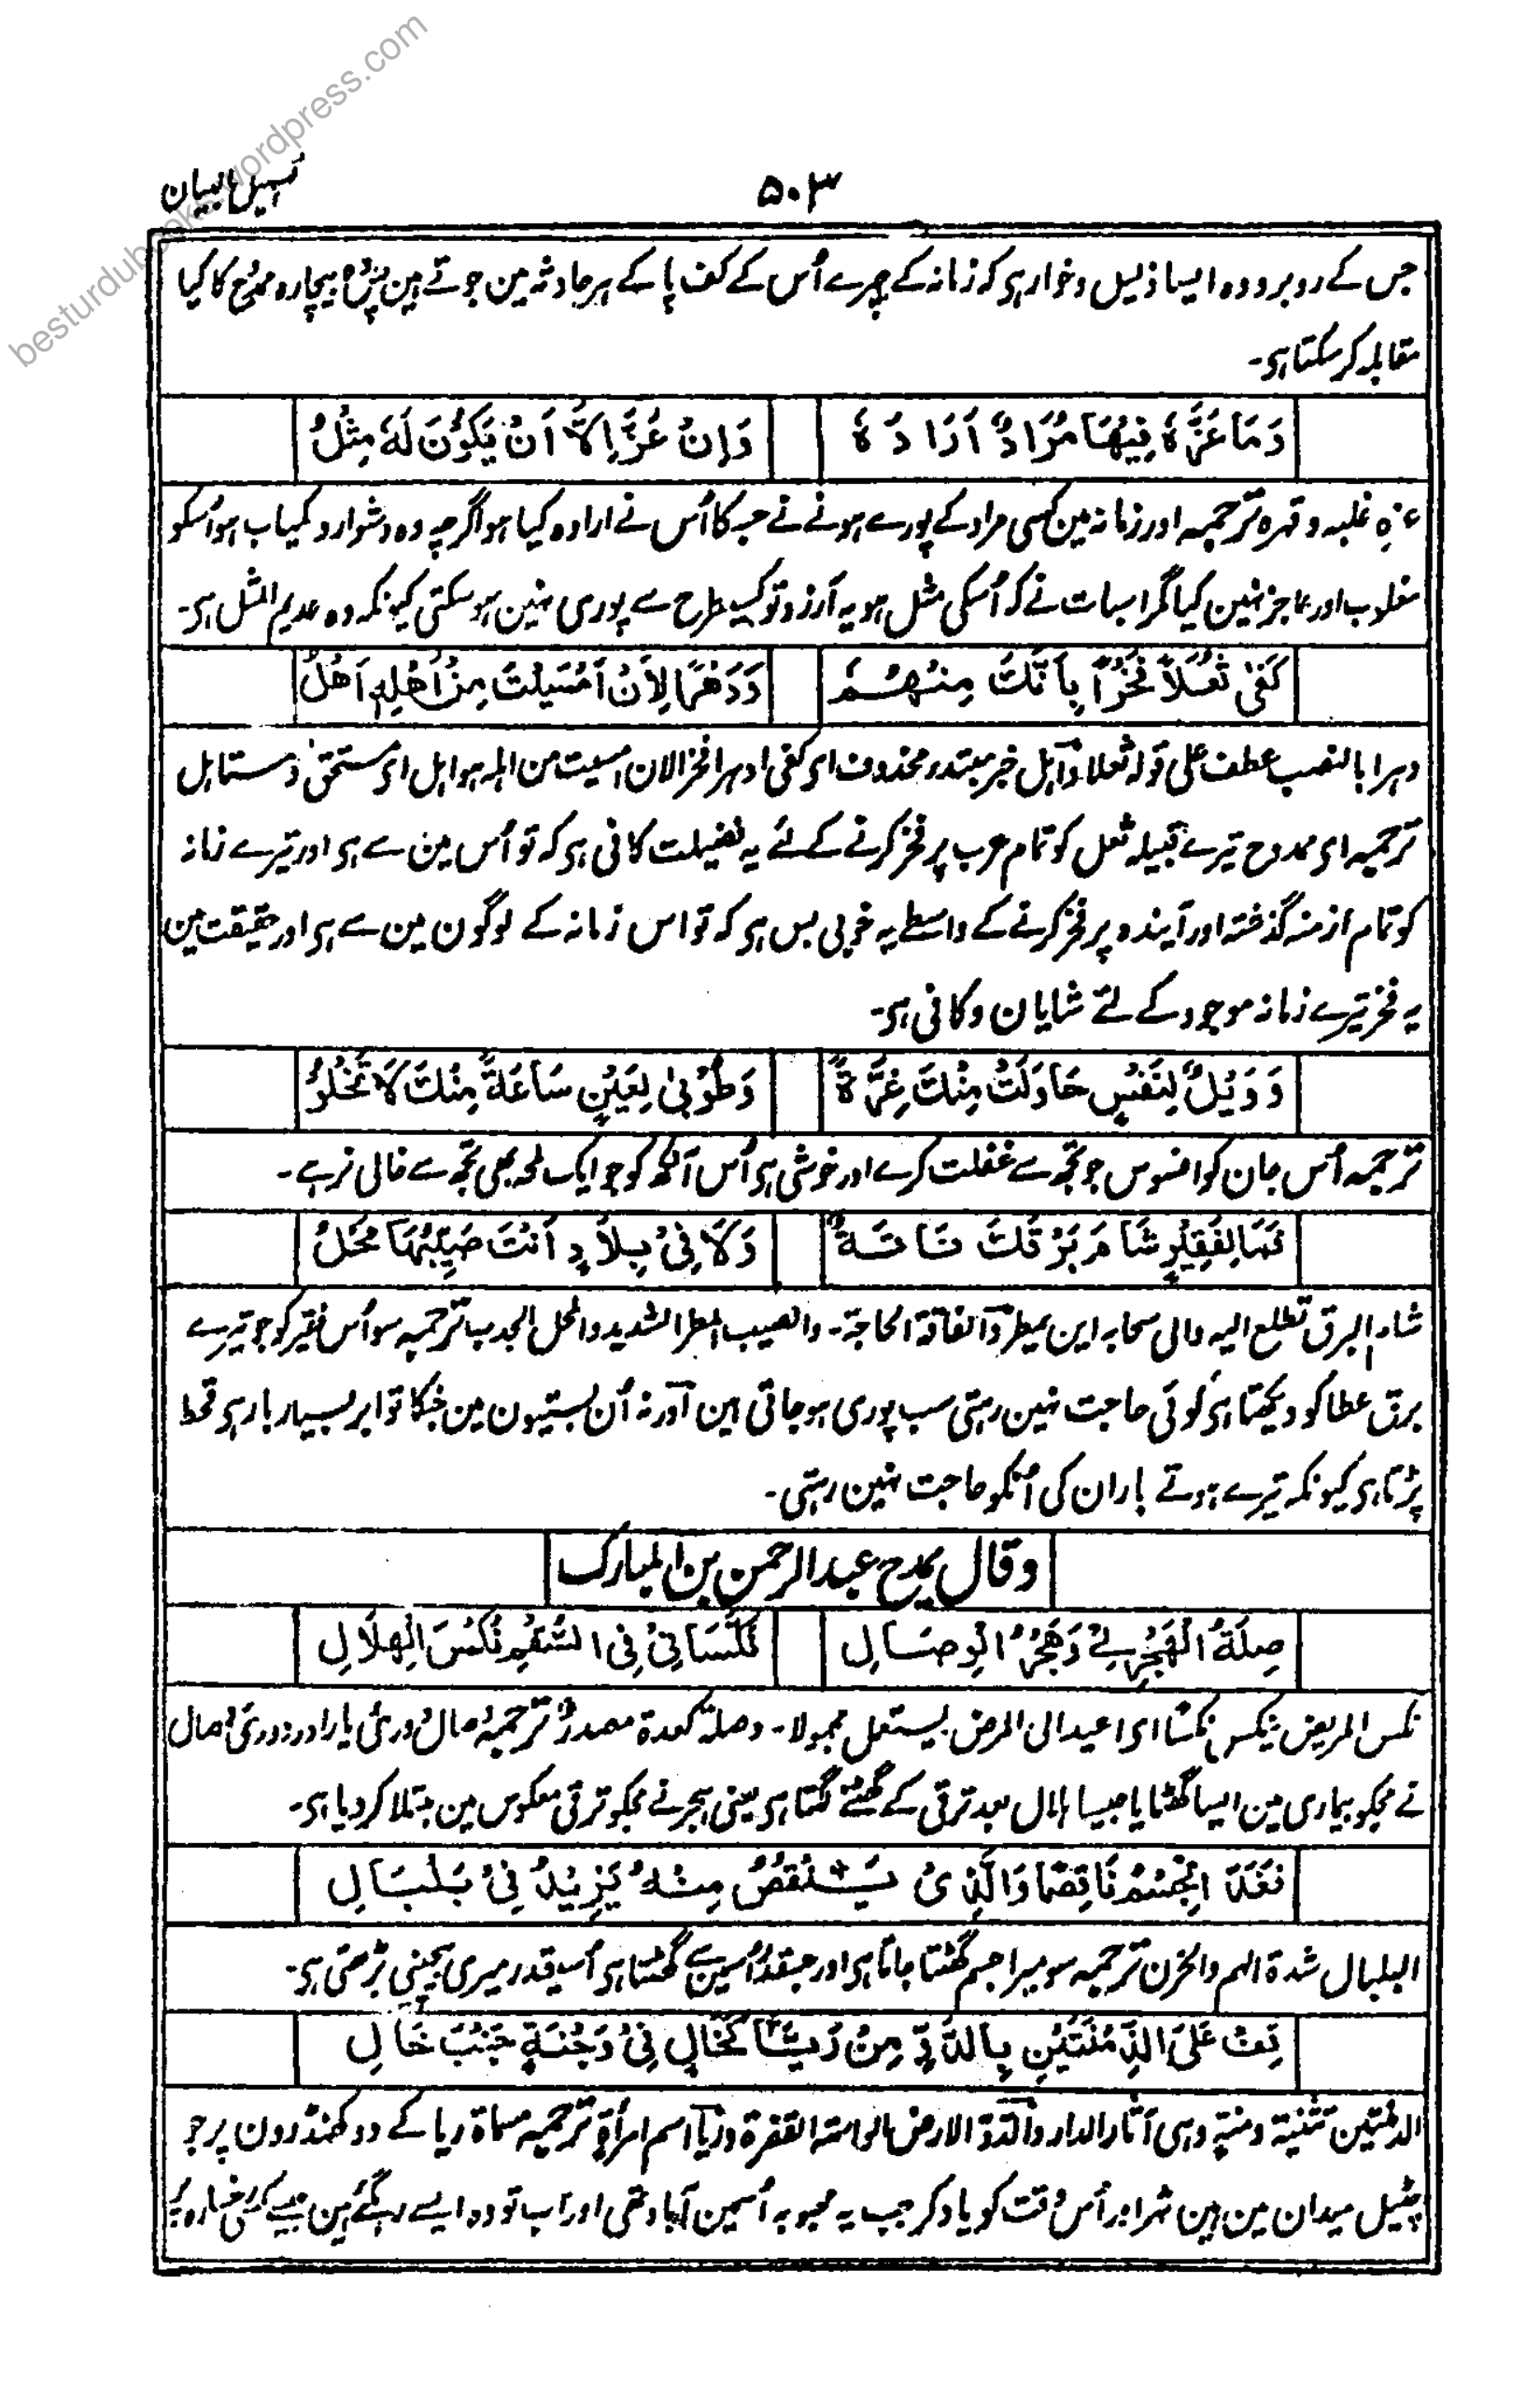 besturdubooks.wordpress.com
تسہیل البیان
۵۰۳
جس کے روبرو وہ ایسا ذلیل و خوار ہی کہ زمانہ کے چہرے اُس کے کف پا کے ہر حادثہ مین جوتے ہین پس بیچارہ ممدوح کا کیا
مقابلہ کر سکتا ہی۔
وَمَا عَزَّہٗ فِیْھَا مُرَادٌ اَرَادَہٗ وَاِنْ عَزَّ اِلَّا اَنْ یَکُوْنَ لَہٗ مِثْلُ
عزہ غلبہ و قہرہ ترجمہ اور زمانہ مین کسی مراد کے پورے ہونے نے جسکا اُس نے ارادہ کیا ہو اگرچہ وہ دشوار و کمیاب ہو اُسکو
مغلوب اور عاجز نہین کیا مگر اس بات نے کہ اُسکی مثل ہو یہ آرزو تو کسیطرح سے پوری نہین ہو سکتی کیونکہ وہ عدیم المثل ہی۔
کَفٰی ثُعَلًا فَخْرًا بِاَنَّکَ مِنْھُمْ وَدَھْرًا لِاَنْ اَمْسَیْتَ مِنْ اَھْلِہٖ اَھْلُ
دہرا بالنصب عطف علی قولہ ثعلا و اہل خبر مبتدء محذوف ای کفی دہرا فخرا لان امسیت من اہلہ ہو اہل ای مستحق و مستاہل
ترجمہ ای ممدوح تیرے قبیلہ ثعل کو تمام عرب پر فخر کرنے کے لئے یہ فضیلت کافی ہی کہ تو اُس مین سے ہی اور تیرے زمانہ
کو تمام ازمنہ گذشتہ اور آیندہ پر فخر کرنے کے واسطے یہ خوبی بس ہی کہ تو اس زمانہ کے لوگون مین سے ہی اور حقیقت مین
یہ فخر تیرے زمانہ موجود کے لئے شایان و کافی ہی۔
وَوَیْلٌ لِنَفْسٍ حَاوَلَتْ مِنْکَ غِرَّۃً وَطُوْبٰی لِعَیْنٍ سَاعَۃً مِنْکَ لَا تَخْلُوْ
ترجمہ اُس جان کو افسوس جو تجھ سے غفلت کرے اور خوشی ہی اُس آنکھ کو جو ایک لمحہ بھی تجھ سے خالی نرہے۔
فَمَا لِفَقِیْرٍ شَامَ بَرْقَکَ فَاقَۃٌ وَلَا فِیْ بِلَادٍ اَنْتَ صَیِّبُھَا مَحْلُ
شام البرق تطلع الیہ والی سحابہ این یمطر و الفاقۃ الحاجۃ۔ والصیب المطر الشدید والمحل الجدب ترجمہ سو اُس فقیر کو جو تیرے
برق عطا کو دیکھتا ہی کوئی حاجت نہین رہتی سب پوری ہو جاتی ہین اور نہ اُن بستیون مین جنکا تو ابر بسیار بار ہی قحط
پڑتا ہی کیونکہ تیرے ہوتے باران کی اُنکو حاجت نہین رہتی۔
وقال یمدح عبدالرحمن بن المبارک
صِلَۃُ الْھَجْرِ لِیْ وَھَجْرُ الْوِصَالِ نَکَّسَانِیْ فِی السُّقْمِ نُکْسَ الْھِلَالِ
نکس المریض ینکس نکسًا ای اعید الی المرض یستعمل مجہولا۔ وصلۃ کعدۃ مصدر ترجمہ وصال دورئ یار اور دورئ وصال
نے مجکو بیماری مین ایسا گھٹایا جیسا ہلال بعد ترقی کے گھٹنے لگتا ہی یعنی ہجر نے مجکو ترقی معکوس مین مبتلا کر دیا ہی۔
فَغَدَا الْجِسْمُ نَاقِصًا وَالَّذِیْ یَنْقُصُ مِنْہُ یَزِیْدُ فِیْ بَلْبَالِ
البلبال شدۃ الہم والحزن ترجمہ سو میرا جسم گھٹتا جاتا ہی اور جسقدر اُسمین سے گھٹتا ہی اُسیقدر میری بیچینی بڑھتی ہی۔
قِفْ عَلَی الدِّمْنَتَیْنِ بِالدَّوِّ مِنْ رَیَّا کَخَالٍ فِیْ وَجْنَۃٍ جَنْبَ خَالِ
الدمنتین تثنیۃ دمنۃ وہی آثار الدار والدّوّ الارض الواسعۃ القفرۃ وریّا اسم امرأۃ ترجمہ مسماۃ ریا کے دو کھنڈرون پر جو
چٹیل میدان مین ہین ٹھہرا اور اُس وقت کو یاد کر جب یہ محبوبہ اُسمین آباد تھی اور اب تو وہ ایسے رہگئے ہین جیسے کسی رخسارہ پر